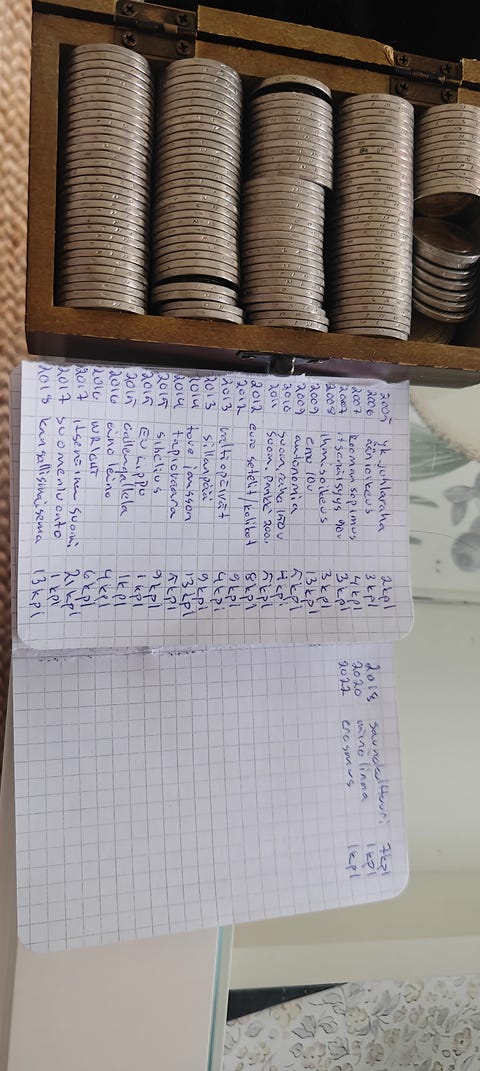 2005 yk juhlaraha 2kpl
2006 äänioikeus 3kpl
2007 rooman sopimus 4kpl
2007 itsenäisyys 90v 3kpl
2008 ihmisoikeus 3kpl
2009 emu 10v 13kpl
2009 autonomia 5kpl
2010 suom. raha 150v 7kpl
2011 suom. pankki 200v 5kpl
2012 euro setelit / kolikot 8kpl
2012 9kpl
2013 valtiopäivät 4kpl
2013 sillanpää 9kpl
2014 tove jansson 13kpl
2014 tapiovaara 5kpl
2015 sibelius 9kpl
2015 EU lippu 1kpl
2015 gallengallela 1kpl
2016 eino leino 4kpl
2016 wright 6kpl
2017 itsenäinen suomi 21kpl
2017 suomen luonto 1kpl
2018 kansallismaisema 13kpl
2018 saunakulttuuri 7kpl
2020 väinö linna 1kpl
2022 erasmus 1kpl